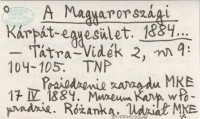 A Magyarországi
Kárpát-egyesület. 1884...
— Tátra-Vidék 2, nr 9:
104-105. TNP
Posiedzenie zarządu MKE
17 IV. 1884. Muzeum Karp. w Po-
pradzie. Różanka. Udział MKE